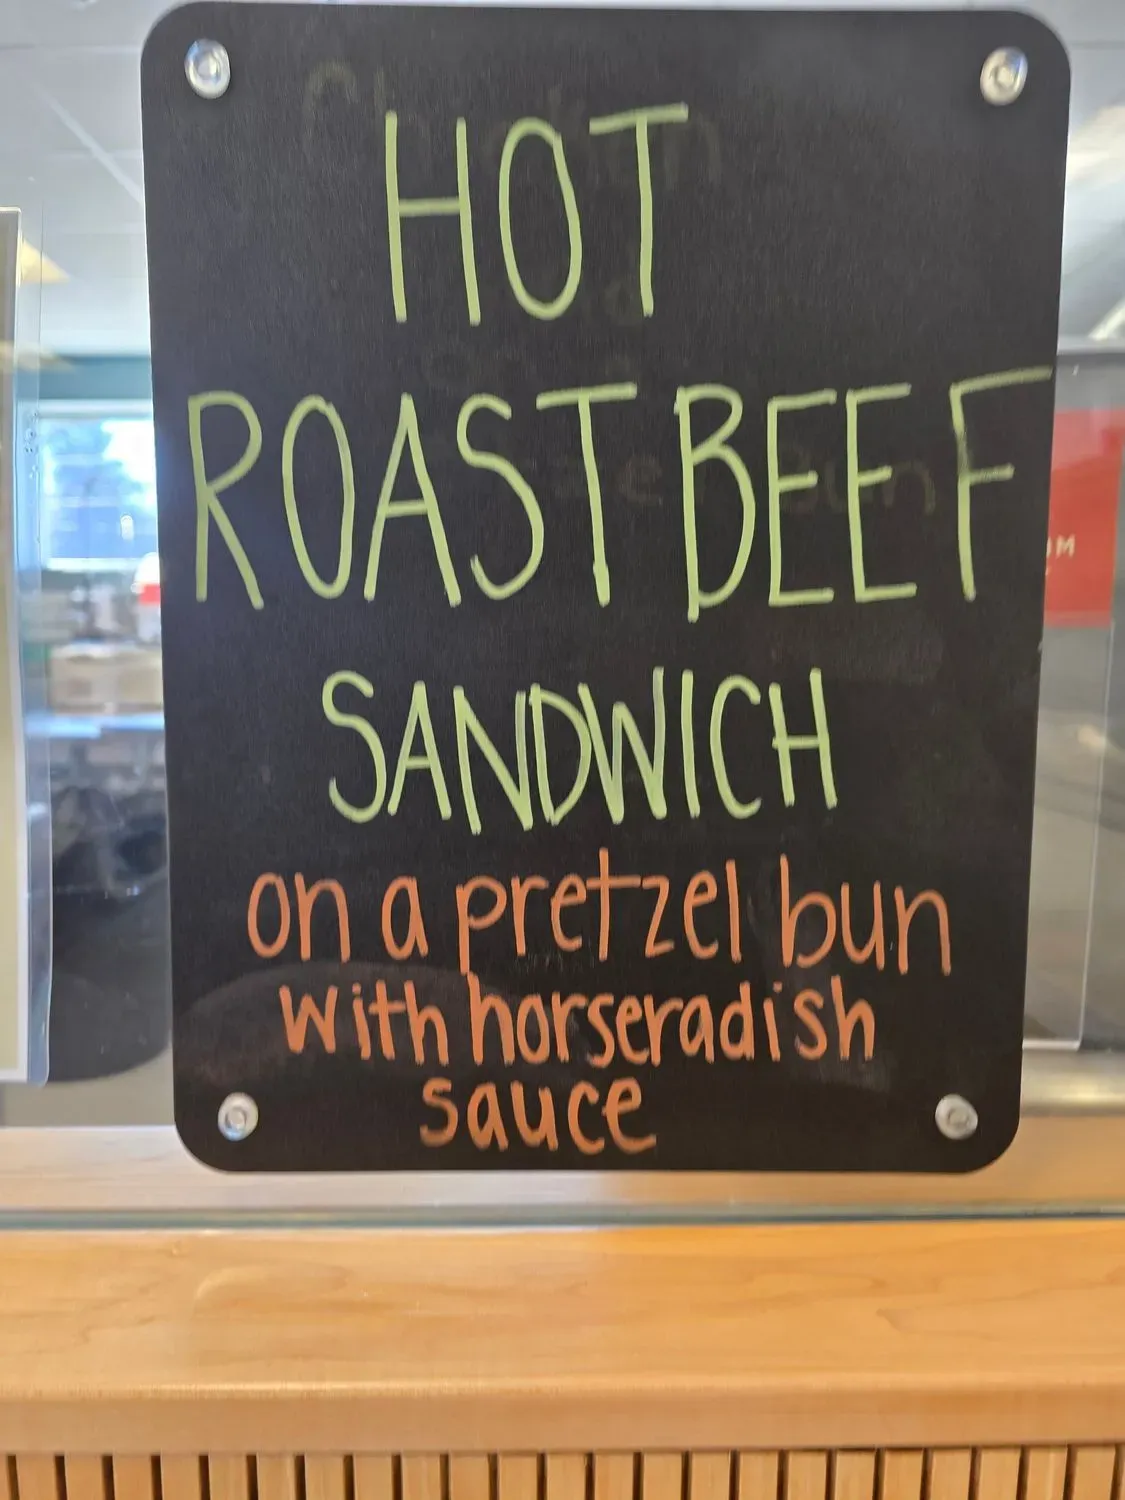 HOT
ROAST BEEF
SANDWICH
on a pretzel bun
with horseradish
sauce